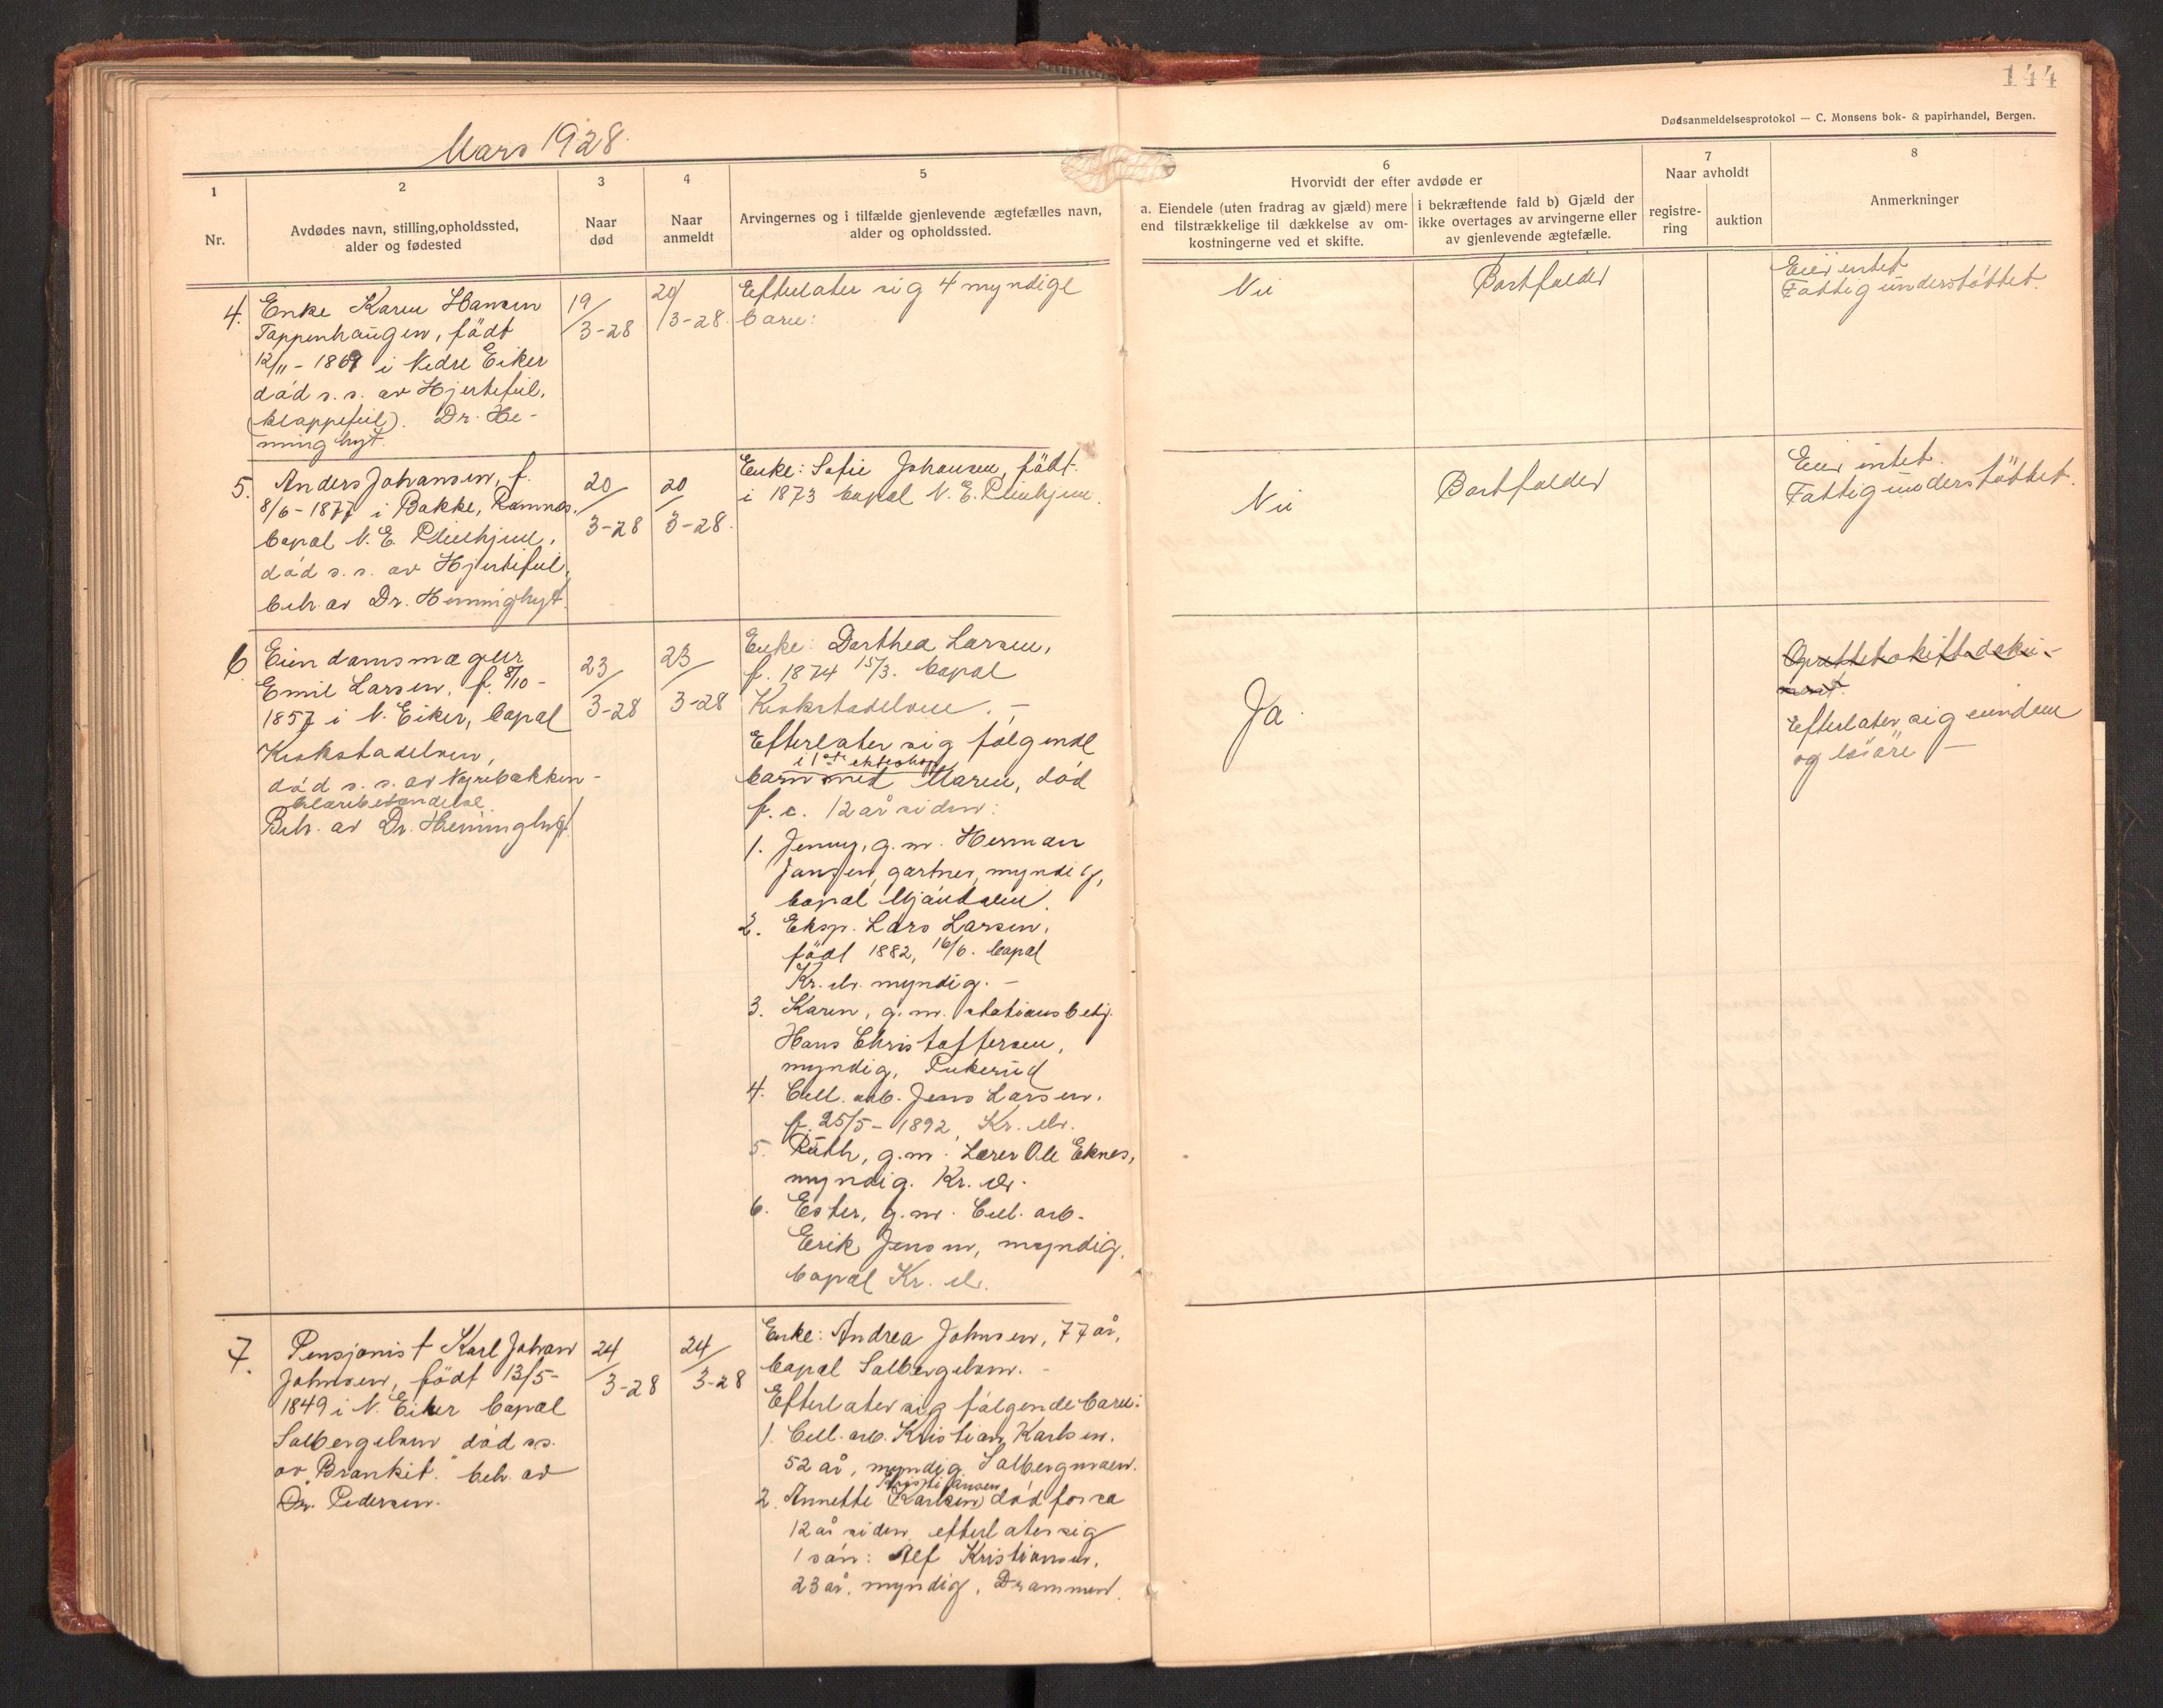 144
Dødsanmeldelsesprotokol — C. Monsens bok- & papirhandel, Bergen.
Mars 1928.
1
Nr.
2
Avdødes navn, stilling, opholdssted,
alder og fødested
3
Naar
død
4
Naar
anmeldt
5
Arvingernes og i tilfælde gjenlevende ægtefælles navn,
alder og opholdssted.
6
Hvorvidt der efter avdøde er
a. Eiendele (uten fradrag av gjæld) mere
end tilstrækkelige til dækkelse av om-
kostningerne ved et skifte.
i bekræftende fald b) Gjæld der
ikke overtages av arvingerne eller
av gjenlevende ægtefælle.
7
Naar avholdt
registre-
ring
auktion
8
Anmerkninger
4.
Enke Karen Hansen
Tappenhaugen, födt
12/11 - 1869 i Nedre Eiker
död s. s. av Hjertefeil.
(klappefeil). Dr. He-
minghyt.
19/3-28
20/3-28.
Efterlater sig 4 myndige
barn:
Nei
Bortfalder
Eier intet
Fattigunderstöttet.
5.
Anders Johansen, f.
8/6 - 1877 i Bakke, Ramnes.
bopæl N. E.
död s. s. av Hjertefeil,
beh. av Dr. Heminghyt.
20/3-28
20/3-28.
Enke: Sofie Johansen, födt
i 1873 bopæl N. E.
Nei
Bortfalder
Eier intet.
Fattigunderstöttet.
6
Eiendomsmægler
Emil Larsen, f. 8/10 -
1857 i N. Eiker, bopæl
Krokstadelven,
död s. s. av Nyrebækken-
betændelse.
Beh. av Dr. Heminghyt.
23/3-28
23/3-28
Enke: Dorthea Larsen,
f. 1874 15/3. bopæl
Krokstadelven. —
Efterlater sig fölgende
i 1ste ekteskap
barn med Maren, död
f. c. 12 år siden:
1. Jenny, g. m. Herman
Jansen, gartner, myndig,
bopæl Mjöndalen.
2. Eksp. Lars Larsen,
födt 1882, 16/6. bopæl
Kr. elv. myndig. —
3. Karen, g. m. stationsbetj.
Hans Christoffersen,
myndig, Pukerud
4. Cell. arb. Jens Larsen.
f. 25/5 - 1892, Kr. elv.
5. Ruth, g. m. Lærer Ole Eknes,
myndig. Kr. elv.
6. Ester, g. m. Cell. arb.
Erik Jensen, myndig.
bopæl Kr. elv.
Ja.
Oprettet skiftedoku-
ment.
Efterlater sig eiendom
og lösöre —
7.
Pensjonist Karl Johan
Johnsen, födt 13/5 -
1849 i N. Eiker bopæl
Solbergelven död s.s.
av "Bronkit." beh. av
Dr. Pedersen.
24/3-28
24/3-28
Enke: Andrea Johnsen, 77 år,
bopæl Solbergelven. —
Efterlater sig fölgende barn:
1. Cell. arb. Kristian Karlsen.
52 år, myndig Solbergmoen.
Kristiansen
2. Annette (Karlsen) död for ca
12 år siden efterlater sig
1 sön: Alf Kristiansen,
23 år. myndig, Drammen.